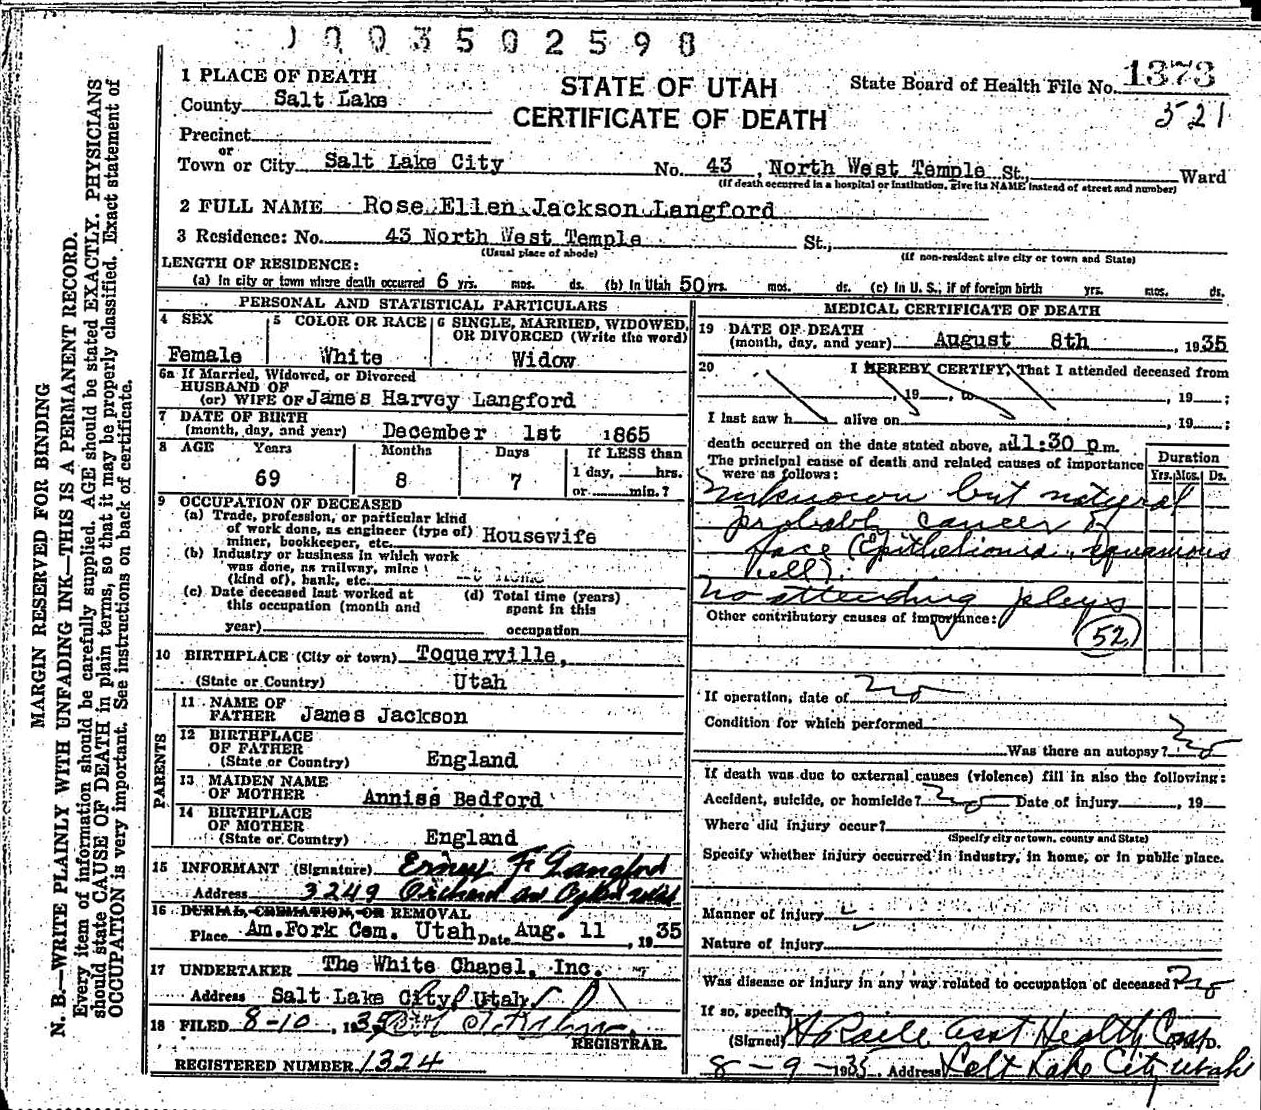 0003502598
1 PLACE OF DEATH
STATE OF UTAH
CERTIFICATE OF DEATH
State Board of Health File No. 1373
521
County Salt Lake
Precinct
or
Town or City Salt Lake City No. 43, North West Temple St., Ward
(If death occurred in a hospital or institution, give its NAME instead of street and number)
2 FULL NAME Rose Ellen Jackson Langford
3 Residence: No. 43 North West Temple St.,
(Usual place of abode) (If non-resident give city or town and State)
LENGTH OF RESIDENCE:
(a) In city or town where death occurred 6 yrs. mos. ds. (b) In Utah 50 yrs. mos. ds. (c) In U. S., if of foreign birth yrs. mos. ds.
PERSONAL AND STATISTICAL PARTICULARS
4 SEX
Female
5 COLOR OR RACE
White
6 SINGLE, MARRIED, WIDOWED,
OR DIVORCED (Write the word)
Widow
6a If Married, Widowed, or Divorced
HUSBAND OF
(or) WIFE OF James Harvey Langford
7 DATE OF BIRTH
(month, day, and year) December 1st 1865
8 AGE Years Months Days If LESS than
1 day, hrs.
69 8 7 or min.?
9 OCCUPATION OF DECEASED
(a) Trade, profession, or particular kind
of work done, as engineer (type of)
miner, bookkeeper, etc. Housewife
(b) Industry or business in which work
was done, as railway, mine
(kind of), bank, etc. Home
(c) Date deceased last worked at
this occupation (month and
year)
(d) Total time (years)
spent in this
occupation
10 BIRTHPLACE (City or town) Toquerville,
(State or Country) Utah
PARENTS
11 NAME OF
FATHER James Jackson
12 BIRTHPLACE
OF FATHER
(State or Country) England
13 MAIDEN NAME
OF MOTHER Anniss Bedford
14 BIRTHPLACE
OF MOTHER
(State or Country) England
15 INFORMANT (Signature) F. Langford
Address 3249 Orchard av Ogden Utah
16 BURIAL, CREMATION, OR REMOVAL
Place Am. Fork Cem. Utah Date Aug. 11, 1935
17 UNDERTAKER The White Chapel, Inc.
Address Salt Lake City Utah
18 FILED 8-10, 1935
REGISTRAR.
REGISTERED NUMBER 1324
MEDICAL CERTIFICATE OF DEATH
19 DATE OF DEATH
(month, day, and year) August 8th, 1935
20 I HEREBY CERTIFY, That I attended deceased from
, 19 , to , 19 ;
I last saw h alive on , 19 ;
death occurred on the date stated above, at 11:30 p.m.
The principal cause of death and related causes of importance
were as follows:
Duration
Yrs. Mos. Ds.
Unknown but natural
probably cancer of
face (Epithelioma, squamous
cell).
No attending phys
Other contributory causes of importance:
52
If operation, date of no
Condition for which performed
Was there an autopsy? no
If death was due to external causes (violence) fill in also the following:
Accident, suicide, or homicide? no Date of injury , 19
Where did injury occur?
(Specify city or town, county and State)
Specify whether injury occurred in industry, in home, or in public place.
Manner of injury
Nature of injury
Was disease or injury in any way related to occupation of deceased? no
If so, specify
(Signed) Asst Health Comp.
8-9-1935. Address Salt Lake City Utah
MARGIN RESERVED FOR BINDING
N. B.—WRITE PLAINLY WITH UNFADING INK—THIS IS A PERMANENT RECORD.
Every item of information should be carefully supplied. AGE should be stated EXACTLY. PHYSICIANS
should state CAUSE OF DEATH in plain terms, so that it may be properly classified. Exact statement of
OCCUPATION is very important. See instructions on back of certificate.